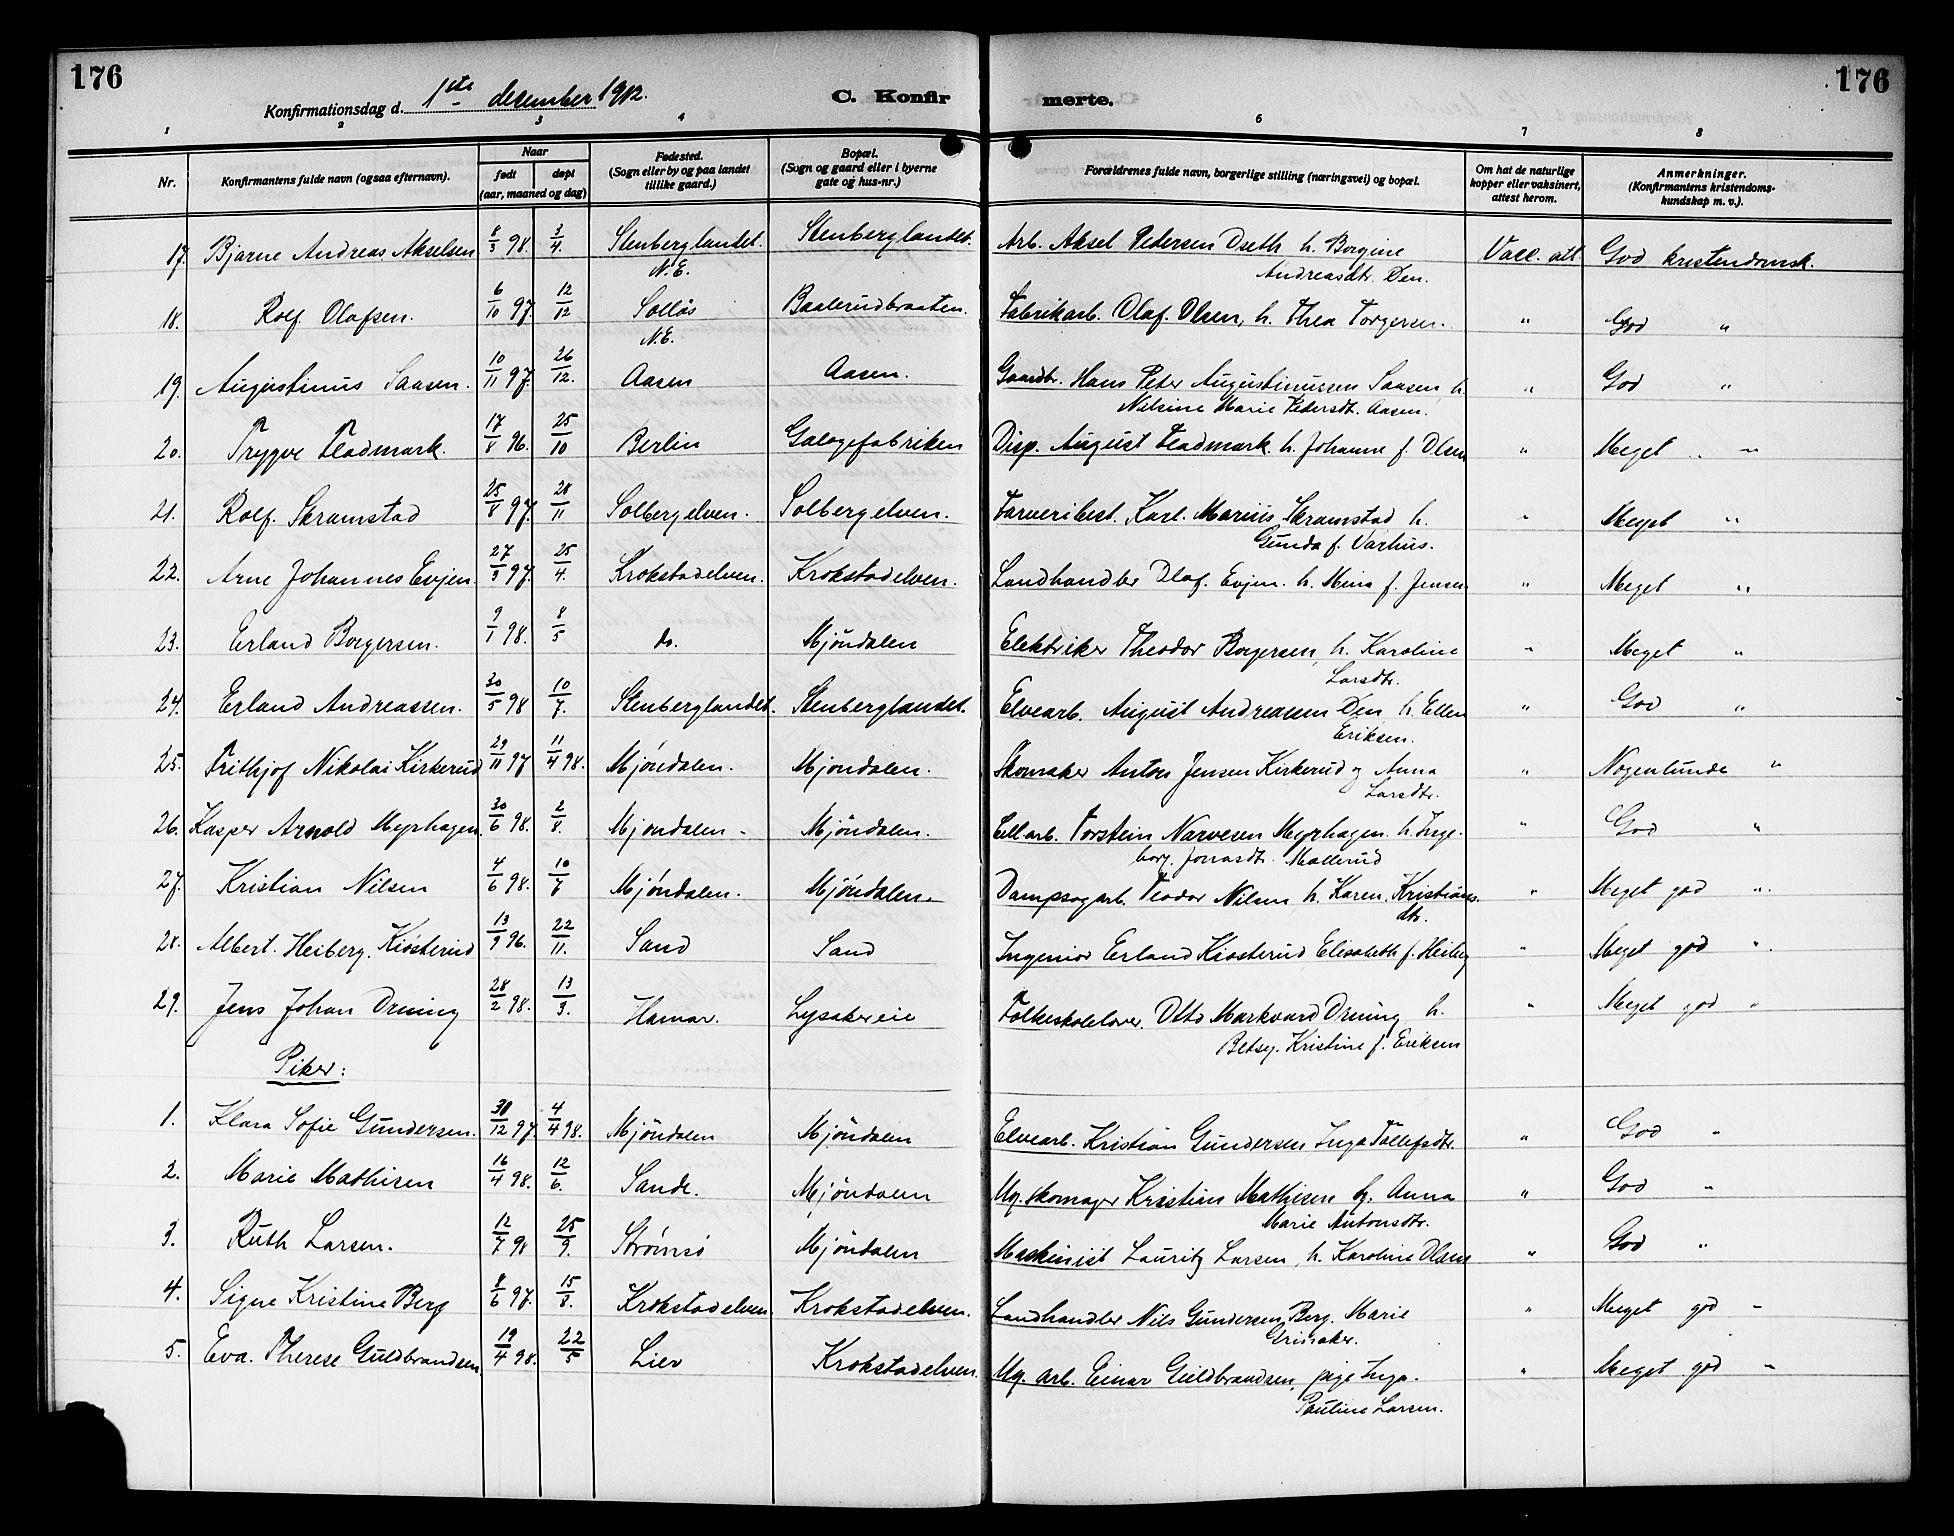 176
176
Konfirmationsdag d. 1ste desember 1912.
C. Konfir
merte.
1 2 3 4 5 6 7 8
Nr. Konfirmantens fulde navn (ogsaa efternavn). Naar født døpt (aar, maaned og dag) Fødested. (Sogn eller by og paa landet tillike gaard.) Bopæl. (Sogn og gaard eller i byerne gate og hus-nr.) Forældrenes fulde navn, borgerlige stilling (næringsvei) og bopæl. Om hat de naturlige kopper eller vaksinert, attest herom. Anmerkninger. (Konfirmantens kristendoms-kundskap m. v.).
17. Bjarne Andreas Akselsen 8/3 98. 3/4. Stenberglandet. Stenberglandet. Arb. Aksel Pedersen Dseth h. Borgine Vacc. att God kristendomsk.
N.E. Andreasdtr. Den.
18. Rolf Olafsen. 6/10 97. 12/12 Solløs Baalerudbraaten. Fabrikarb. Olaf Olsen, h. Thea Torgersen. " God "
N.E.
19. Augustinus Saasen. 10/11 97. 26/12. Aasen Aasen. Gaardbr. Hans Peter Augustinussen Saasen h. " God "
Nilsine Marie Pedersdt. Aasen.
20. Trygve Fladmark. 17/8 96. 25/10 Berlin Galogefabriken Disp. August Fladmark. h. Johanne f. Olsen " Meget " "
21. Rolf Skramstad 25/8 97. 28/11 Solbergelven. Solbergelven. Farveribest. Karl Marius Skramstad h. " Meget "
Gunda f. Varhus.
22. Arne Johannes Evjen 27/3 97. 25/4. Krokstadelven. Krokstadelven. Landhandler Olaf Evjen. h. Mina f. Jensen " Meget "
23. Erland Borgersen. 9/1 98. 8/5 do. Mjöndalen Elektriker Theodor Borgersen, h. Karoline " Meget "
Larsdtr.
24. Erland Andreassen. 30/5 98 10/7. Stenberglandet. Stenberglandet. Elvearb. August Andreassen Den h. Ellen " God "
Eriksen.
25. Frithjof Nikolai Kirkerud 29/11 97 11/4 98. Mjöndalen. Mjondalen. Skomaker Anton Jensen Kirkerud og Anna " Nogenlunde "
Larsdtr.
26. Kasper Arnold Myrhagen 30/6 98. 2/8. Mjondalen - Mjöndalen. Cell arb. Torstein Narvesen Myrhagen. h. Inge- " God "
borg Jonasdtr. Mollerud
27. Kristian Nilsen 4/6 98. 10/7 Mjöndalen. Mjöndalen. Dampsagarb. Teodor Nilsen h. Karen Kristians- " Meget god "
dtr.
28. Albert Heiberg Kiösterud 13/9 96. 22/11. Sand Sand Ingeniör Erland Kiösterud Elisabeth f. Heiberg " Meget god "
29. Jens Johan Dreüing 28/2 98. 13/3. Hamar. Lysakereie Folkeskolelærer Otto Markvard Dreüing h. " Meget god "
Betsy Kristine f. Eriksen
Piker:
1. Klara Sofie Gundersen. 30/12 97. 4/4 98. Mjöndalen Mjöndalen Elvearb. Kristian Gundersen, Inga Tollefsdtr. " God "
2. Marie Mathisen 16/4 98. 12/6. Sande. Mjöndalen Ug. skomager Kristian Mathisen og Anna " God "
Marie Antonsdtr.
3. Ruth Larsen. 12/7 98 25/9. Strömsö Mjöndalen Maskinist Lauritz Larsen, h. Karoline Olsen " God "
4. Signe Kristine Berg 8/6 97. 15/8. Krokstadelven. Krokstadelven. Landhandler Nils Gundersen Berg. Marie " Meget god "
Grinaker.
5. Eva Therese Guldbrandsen 19/4 98. 22/5 Lier Krokstadelven. Ug. arb. Einar Guldbrandsen, pige Inga " Meget god "
Pauline Larsen.